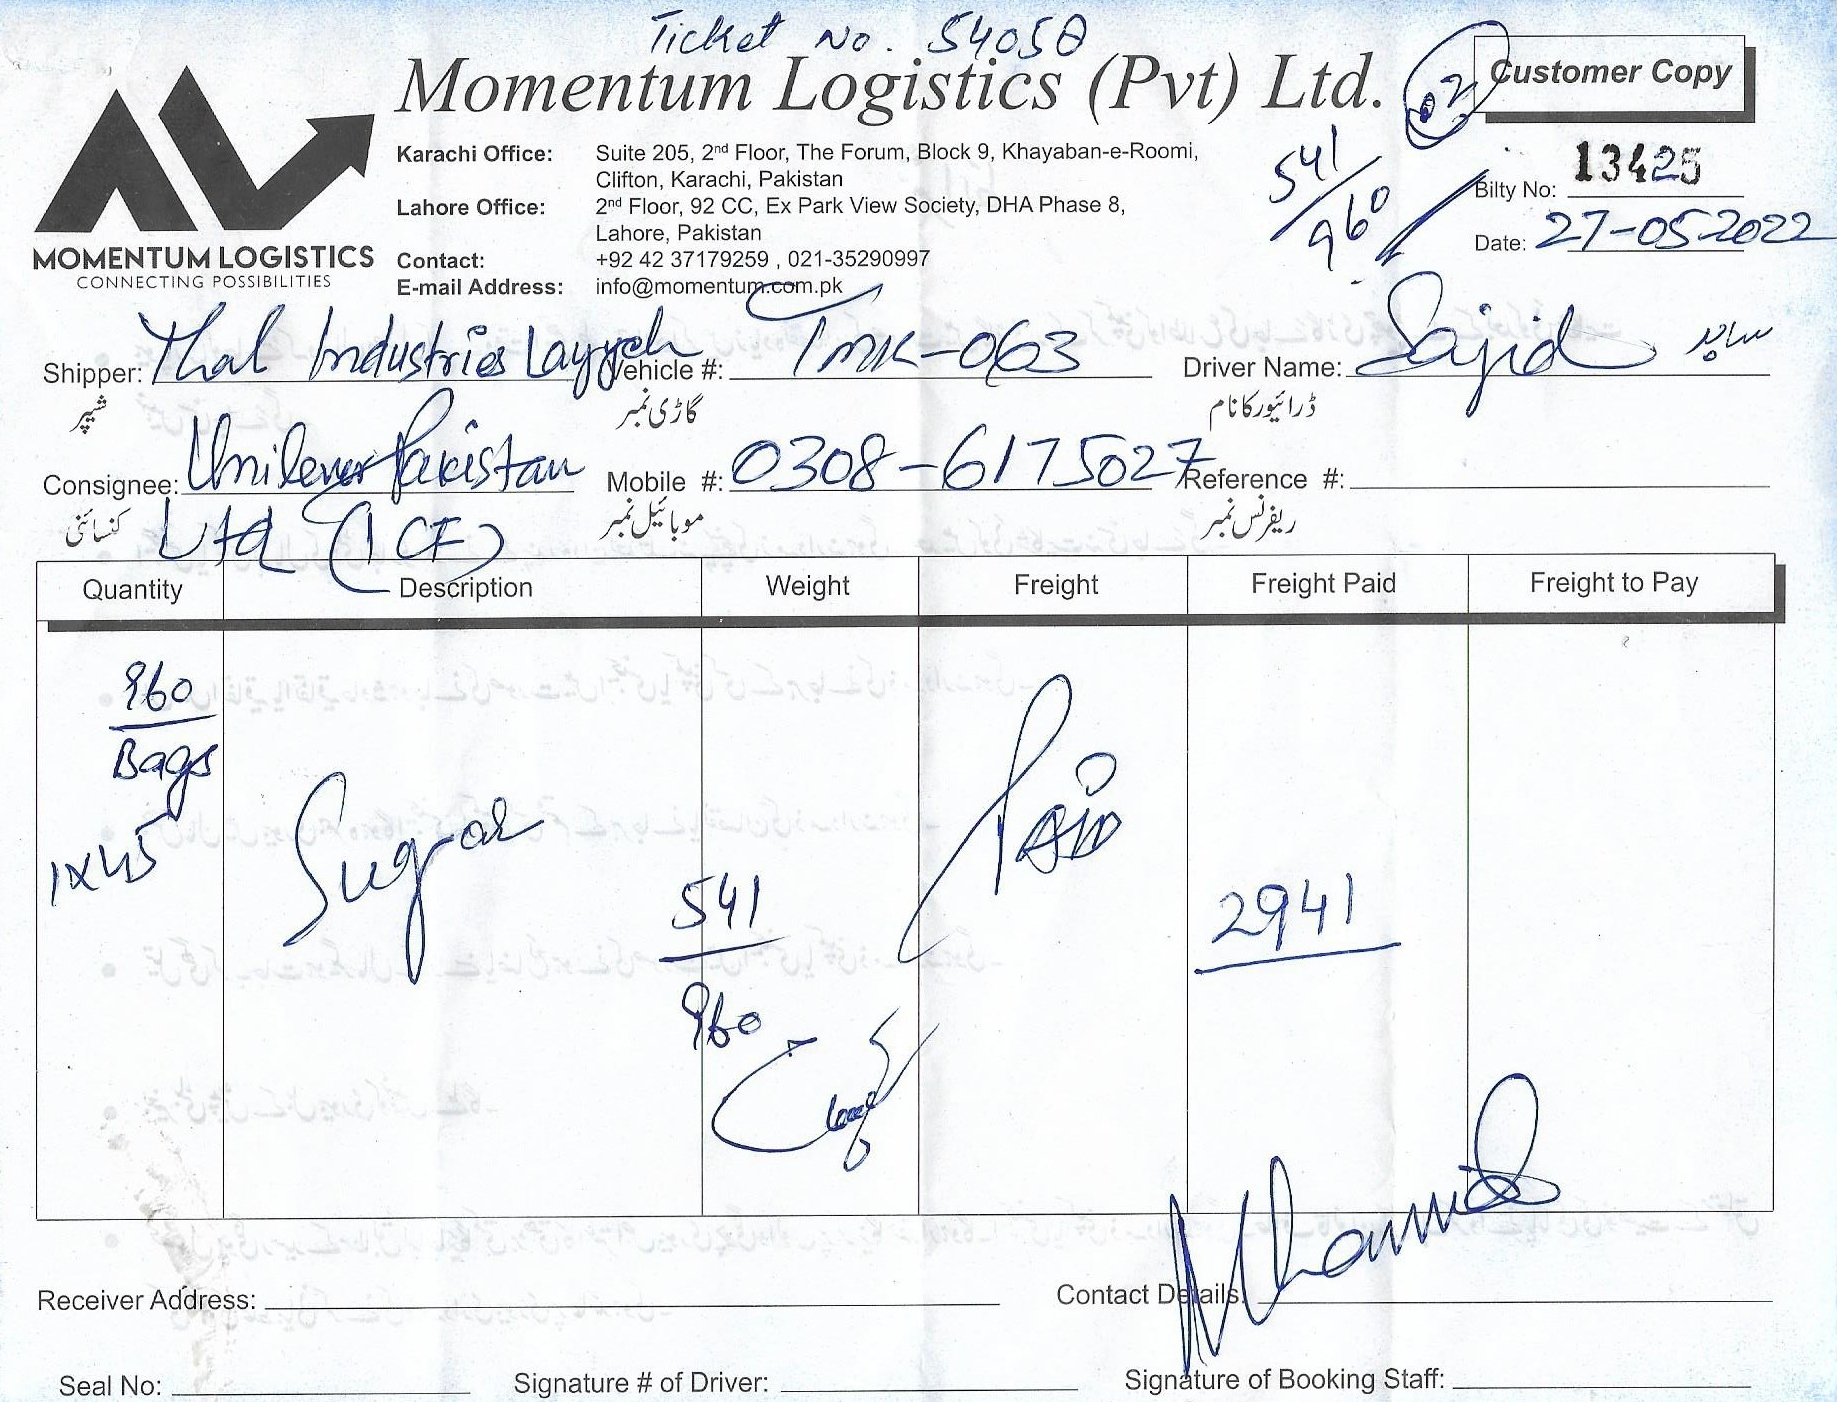 Ticket No. 54050
Momentum Logistics (Pvt) Ltd.
02
Customer Copy
MOMENTUM LOGISTICS
CONNECTING POSSIBILITIES
Karachi Office: Suite 205, 2nd Floor, The Forum, Block 9, Khayaban-e-Roomi,
Clifton, Karachi, Pakistan
Lahore Office: 2nd Floor, 92 CC, Ex Park View Society, DHA Phase 8,
Lahore, Pakistan
Contact: +92 42 37179259 , 021-35290997
E-mail Address: info@momentum.com.pk
541
960
Bilty No: 13425
Date: 27-05-2022
Shipper: Thal Industries Layyah Vehicle #: TMK-063 Driver Name: Sajid
شپر گاڑی نمبر ڈرائیور کا نام
Consignee: Unilever Pakistan Mobile #: 0308-6175027 Reference #:
Ltd (ICF)
کنسائنی موبائیل نمبر ریفرنس نمبر
Quantity Description Weight Freight Freight Paid Freight to Pay
960
Bags
1x45
Sugar
541
960
Paid
2941
Receiver Address: Contact Details:
Seal No: Signature # of Driver: Signature of Booking Staff: